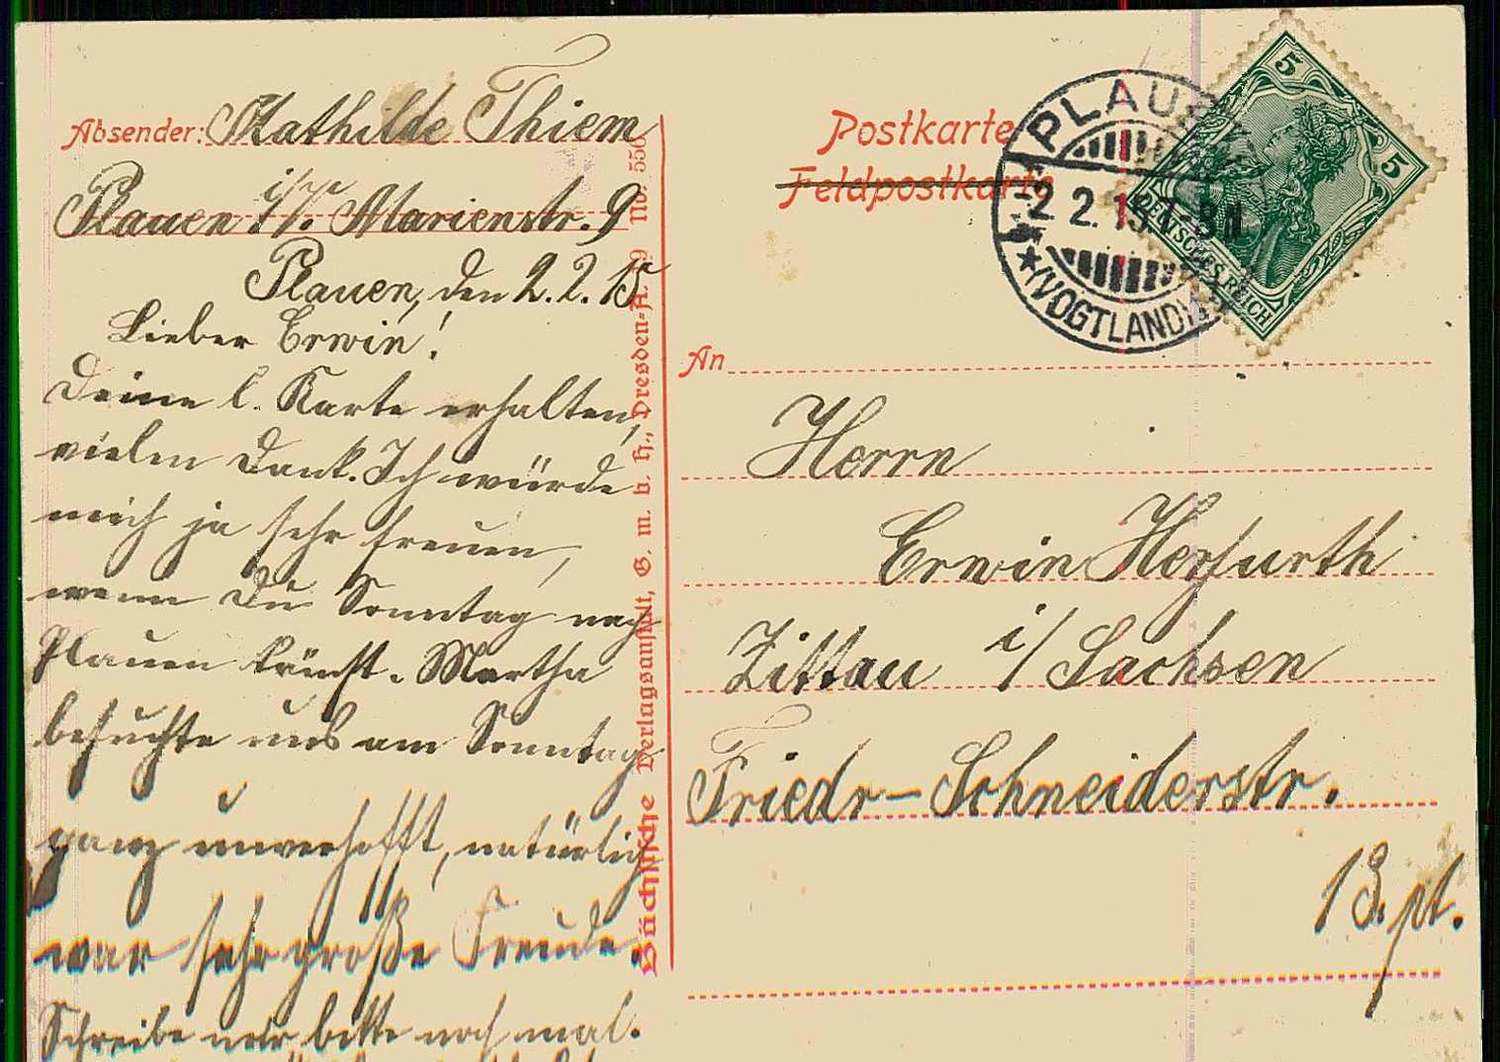 Absender: Mathilde Thiem
Plauen i/V. Marienstr. 9
Plauen, den 2.2.15
Lieber Erwin!
Deine l. Karte erhalten,
vielen Dank. Ich würde
mich ja sehr freuen,
wenn Du Sonntag nach
Plauen kämst. Martha
besuchte uns am Sonntag
ganz unverhofft, natürlich
war sehr große Freude.
Schreibe mir bitte noch mal.
Sächsische Verlagsanstalt, G. m. b. H., Dresden-A. 9 No. 550
Postkarte
Feldpostkarte
PLAUEN
2 2. 15
(VOGTLAND)
5
5
DEUTSCHES REICH
An
Herrn
Erwin Herfurth
Zittau i/Sachsen
Friedr-Schneiderstr.
13. pt.